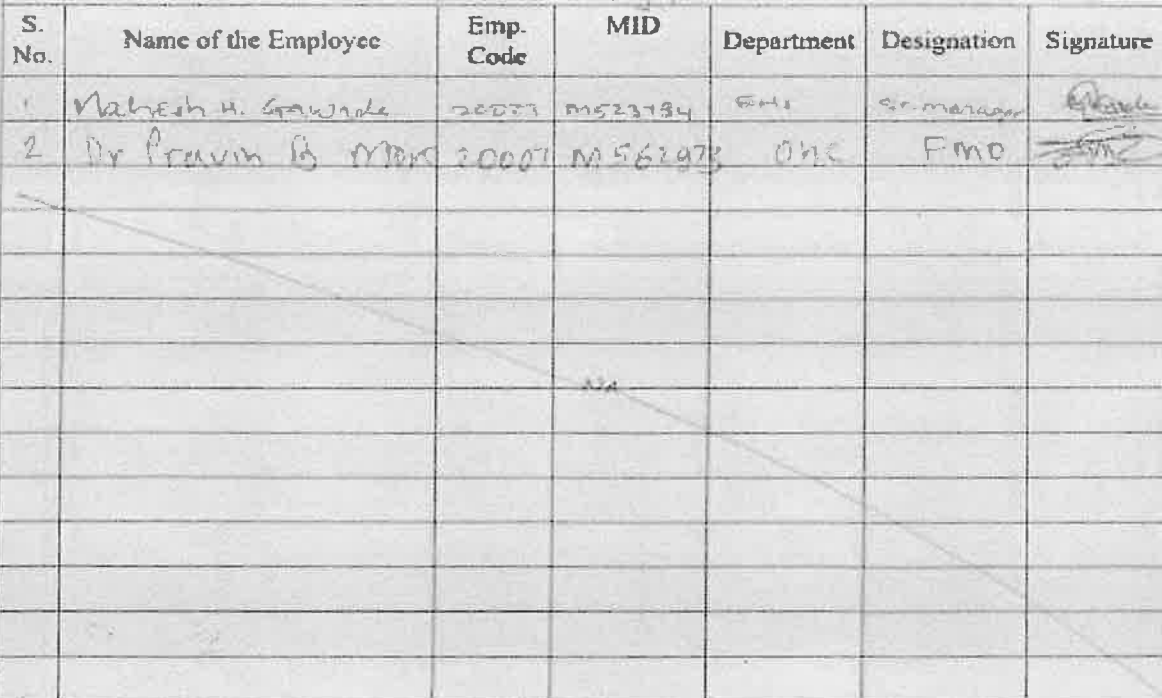 S. No. Name of the Employee Emp. Code MID Department Designation Signature
1 Mahesh H. Gawade M523184 EHS Sr. manager
2 Dr Pravin B More 20007 M562973 OHC FMO
NA